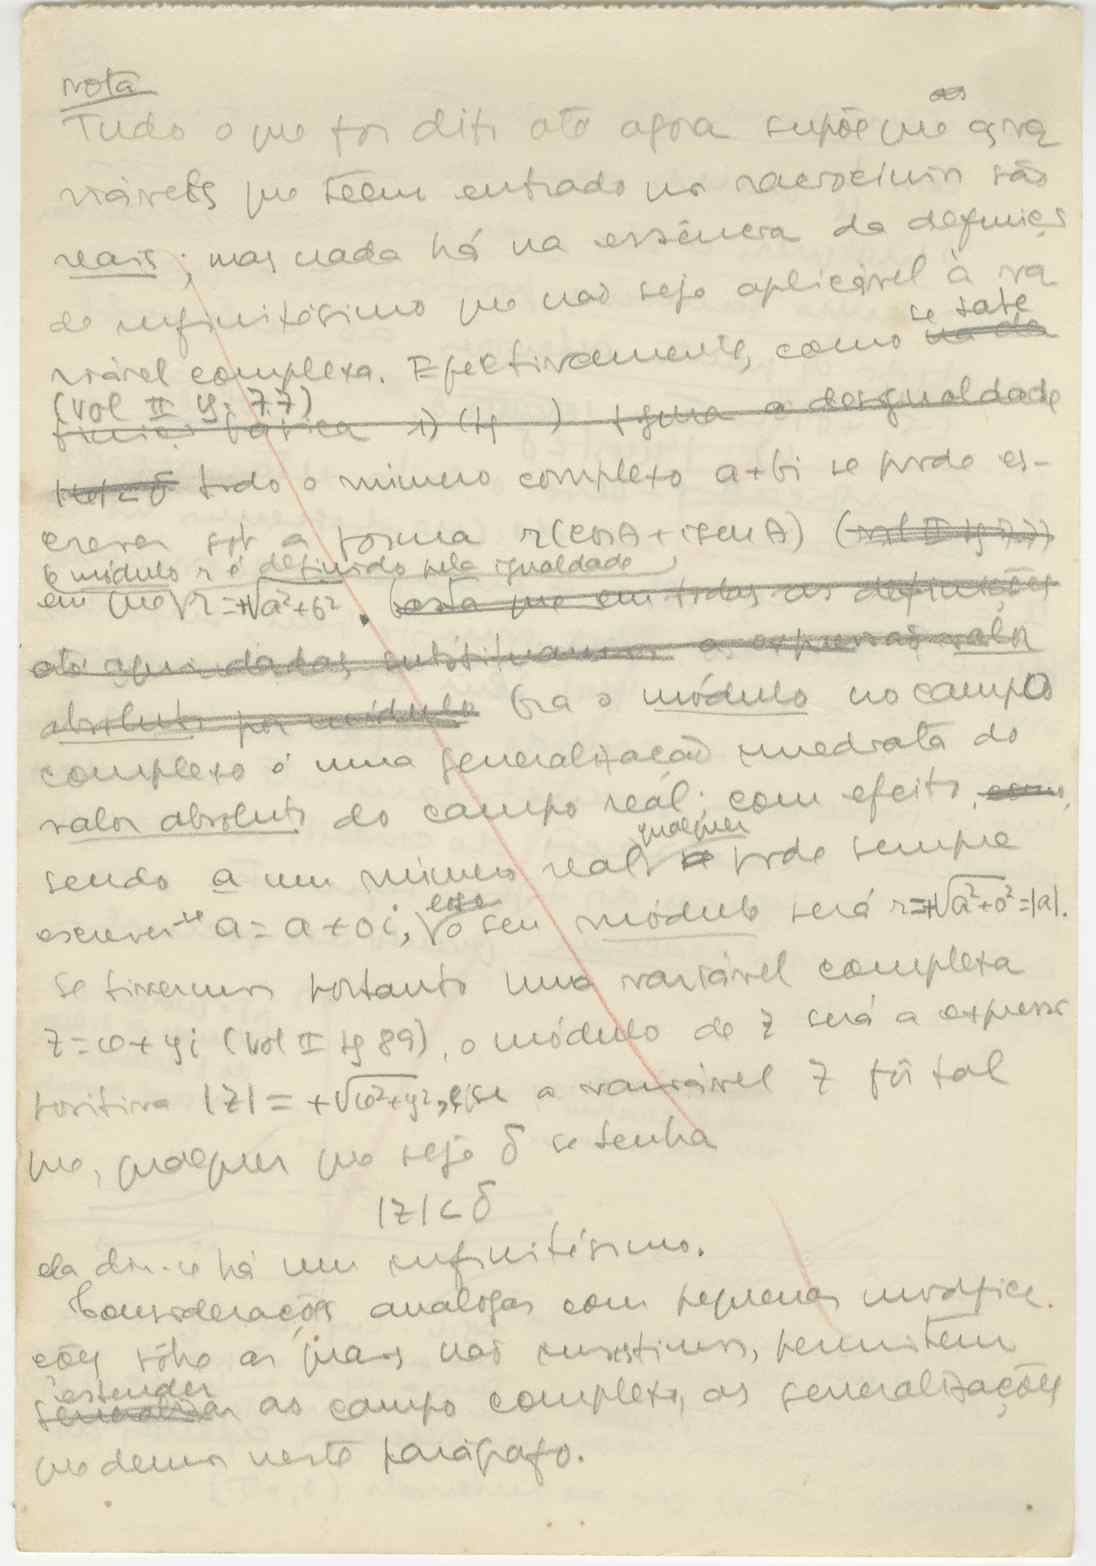 nota
Tudo o que foi dito até agora supõe que as va
riáveis que têem entrado no raciocínio são
reais; mas nada há na essência da definição
de infinitésimo que não seja aplicável à va
riável complexa. Efectivamente, como se sabe
(vol II pg. 77)
finição básica 1) (pg ) figura a desigualdade
todo o número complexo a+bi se pode es-
crever sob a forma r(cosA+isenA) (vol II pg 77)
o módulo r é definido pela igualdade
em que r=+√a²+b². (esta que em todas as definições
até aqui dadas substituamos a expressão valor
absoluto por módulo Ora o módulo no campo
complexo é uma generalização imediata do
valor absoluto do campo real; com efeito, como,
sendo a um número real qualquer pode sempre
escrever-se a=a+0i, esse o seu módulo será r=+√a²+0²=|a|.
Se tivermos portanto uma variável complexa
z=x+yi (vol II pg 89), o módulo de z será a expressão
positiva |z|=+√x²+y², e, se a variável z fôr tal
que, qualquer que seja δ se tenha
|z|<δ
ela diz-se há um infinitésimo.
Considerações analogas com pequenas modifica.
ções sôbre as quais não insistimos, permitem
estender
generalizar ao campo complexo, as generalizações
que demos neste parágrafo.